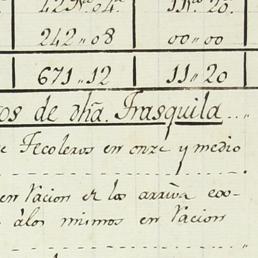 42 04 11 20.
242 „ 08 00 „ 00
671 „ 12 11 „ 20
os de dha. Trasquila
e Tecoleros en onze y medio
en Racion de los arriva ex-
álos mismos en Racion